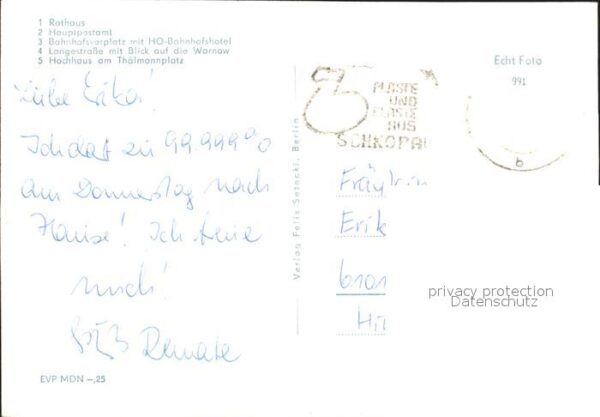 1 Rathaus
2 Hauptpostamt
3 Bahnhofsvorplatz mit HO-Bahnhofshotel
4 Langestraße mit Blick auf die Warnow
5 Hochhaus am Thälmannplatz
Liebe Erika!
Ich darf zu 99,999%
am Donnerstag nach
Hause! Ich freue
mich!
Renate
EVP MDN –,25
Verlag Felix Setecki, Berlin
PLASTE
UND
ELASTE
AUS
SCHKOPAU
Echt Foto
991
b
Fräulein
Erik
6101
privacy protection
Datenschutz